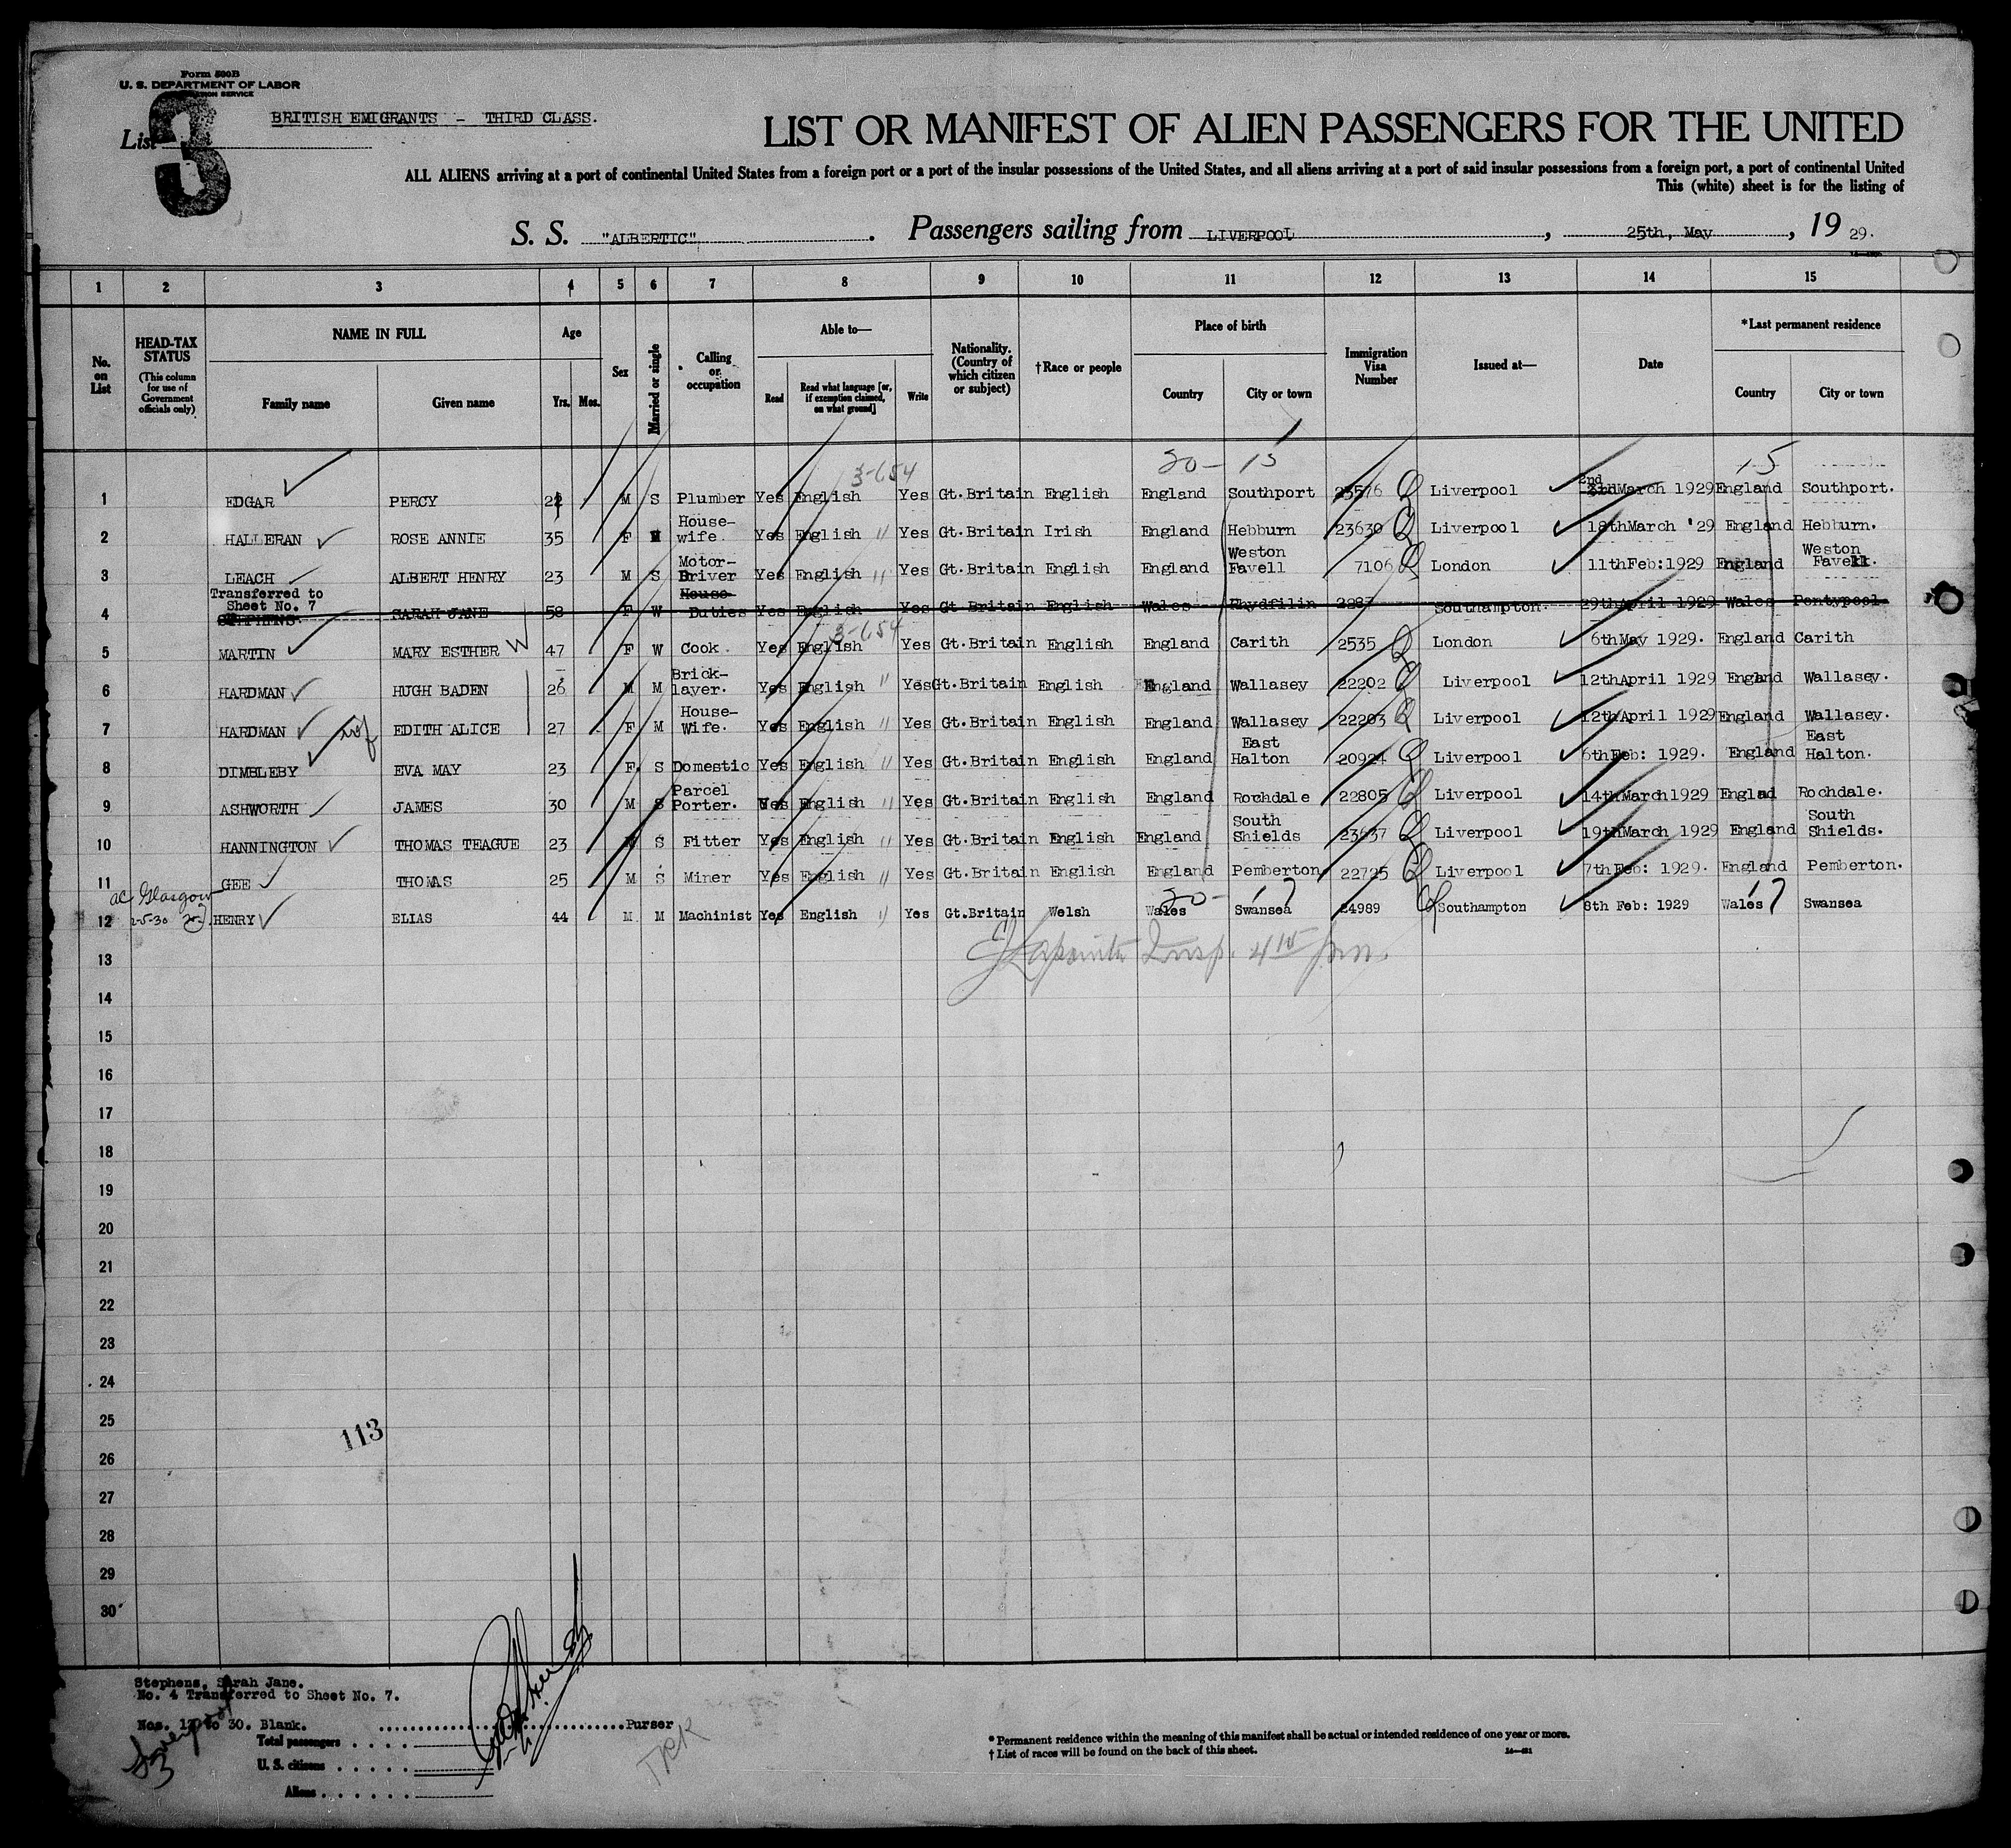 Form 500B
U. S. DEPARTMENT OF LABOR
List 3
BRITISH EMIGRANTS - THIRD CLASS.
LIST OR MANIFEST OF ALIEN PASSENGERS FOR THE UNITED
ALL ALIENS arriving at a port of continental United States from a foreign port or a port of the insular possessions of the United States, and all aliens arriving at a port of said insular possessions from a foreign port, a port of continental United
This (white) sheet is for the listing of
S. S. "ALBERTIC" . Passengers sailing from LIVERPOOL , 25th, May , 19 29.
1 2 3 4 5 6 7 8 9 10 11 12 13 14 15
No. on List HEAD-TAX STATUS (This column for use of Government officials only) NAME IN FULL Family name Given name Age Yrs. Mos. Sex Married or single Calling or occupation Able to— Read Read what language [or, if exemption claimed, on what ground] Write Nationality. (Country of which citizen or subject) †Race or people Place of birth Country City or town Immigration Visa Number Issued at— Date *Last permanent residence Country City or town
3-654 20- 15 15
1 EDGAR PERCY 22 M S Plumber Yes English Yes Gt.Britain English England Southport 23576 Liverpool 2nd March 1929 England Southport.
2 HALLERAN ROSE ANNIE 35 F House-wife. Yes English " Yes Gt.Britain Irish England Hebburn 23630 Liverpool 18thMarch '29 England Hebburn.
3 LEACH ALBERT HENRY 23 M S Motor-Driver Yes English " Yes Gt.Britain English England Weston Favell 7106 London 11thFeb:1929 England Weston Favell.
Transferred to Sheet No. 7
4 SARAH JANE 58 F W House Duties Yes English Yes Gt Britain English Wales Rhydfilin Southampton. 29thApril 1929 Wales Pontypool
3-654
5 MARTIN MARY ESTHER W 47 F W Cook. Yes English Yes Gt.Britain English England Carith 2535 London 6thMay 1929. England Carith
6 HARDMAN HUGH BADEN 26 M M Brick-layer. Yes English " Yes Gt.Britain English England Wallasey 22202 Liverpool 12thApril 1929 England Wallasey.
7 HARDMAN wf EDITH ALICE 27 F M House-Wife. Yes English " Yes Gt.Britain English England Wallasey 22203 Liverpool 12thApril 1929 England Wallasey.
8 DIMBLEBY EVA MAY 23 F. S Domestic Yes English " Yes Gt.Britain English England East Halton 20924 Liverpool 6thFeb: 1929. England East Halton.
9 ASHWORTH JAMES 30 M S Parcel Porter. Yes English " Yes Gt.Britain English England Rochdale 22805 Liverpool 14thMarch1929 Englad Rochdale.
10 HANNINGTON THOMAS TEAGUE 23 M S Fitter Yes English " Yes Gt.Britain English England South Shields 23637 Liverpool 19thMarch 1929 England South Shields.
11 GEE THOMAS 25 M S Miner Yes English " Yes Gt.Britain English England Pemberton 22725 Liverpool 7thFeb: 1929. England Pemberton.
Glasgow 20- 17 17
12 2-5-30 HENRY ELIAS 44 M M Machinist Yes English " Yes Gt.Britain Welsh Wales Swansea 24989 Southampton 8th Feb: 1929 Wales Swansea
13 Insp.
14
15
16
17
18
19
20
21
22
23
24
25
113
26
27
28
29
30
Stephens, Sarah Jane.
No. 4 Transferred to Sheet No. 7.
Nos. 13 to 30. Blank. Purser
Total passengers
U. S. citizens
Aliens
* Permanent residence within the meaning of this manifest shall be actual or intended residence of one year or more.
† List of races will be found on the back of this sheet.